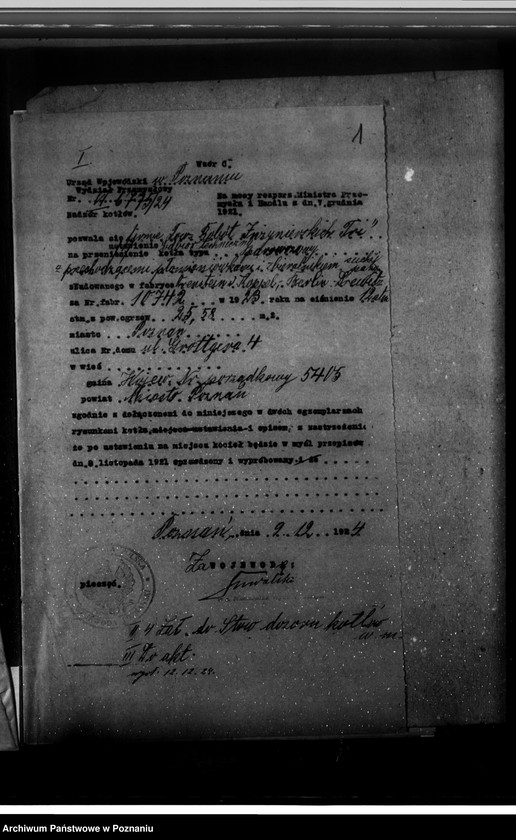 1
I
Wzór C.
Urząd Wojewódzki w Poznaniu
Wydział Przemysłowy
Nr. 6775/24
Nadzór kotłów.
Na mocy rozporz. Ministra Prze-
mysłu i Handlu z dn. 7. grudnia
1921.
pozwala się firmie Robót Inżynierskich Tri".
ustawienie
na przeniesienie kotła typu
znalezionego w fabryce Orenstein & Koppel, Berlin-Drewitz
za Nr. fabr. 10742 w 1923. roku na ciśnienie
atm. z pow. ogrzew. 25,52 m.2.
miasto Poznań
ulica Nr. domu ul. Grottgera 4
w wieś
gmina Nr. porządkowy 5405
powiat Miasto Poznań
zgodnie z dołączonemi do niniejszego w dwóch egzemplarzach
rysunkami kotła, miejsca ustawienia i opisem, z zastrzeżeniem
że po ustawieniu na miejscu kocieł będzie w myśl przepisów
dn. 8. listopada 1921 sprawdzony i wypróbowany i że
Poznań, dnia 2. 12. 1924.
Za WOJEWODĄ:
pieczęć.
II 4 Zał. do Stow dozoru kotłów
w m.
III Do akt.
wysł. 12.12.24.
Archiwum Państwowe w Poznaniu